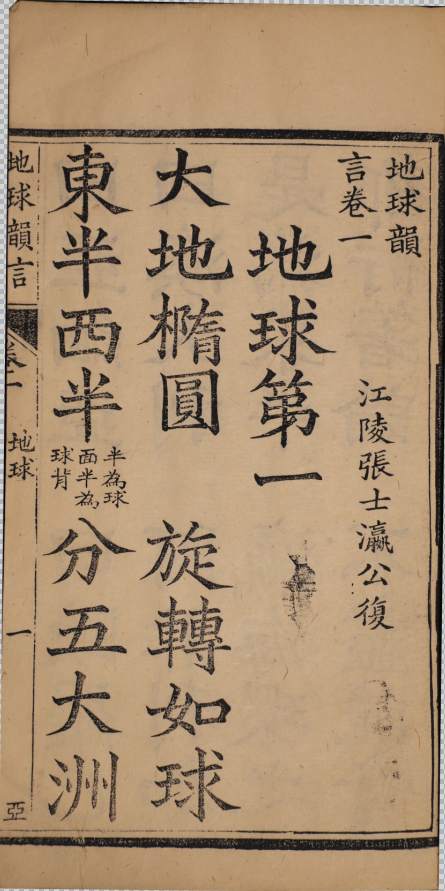 地球韻
言卷一
江陵張士瀛公復
地球第一
大地橢圓 旋轉如球
東半西半
半為球
面半為
球背
分五大洲
地球韻言
卷一
地球
一
亞